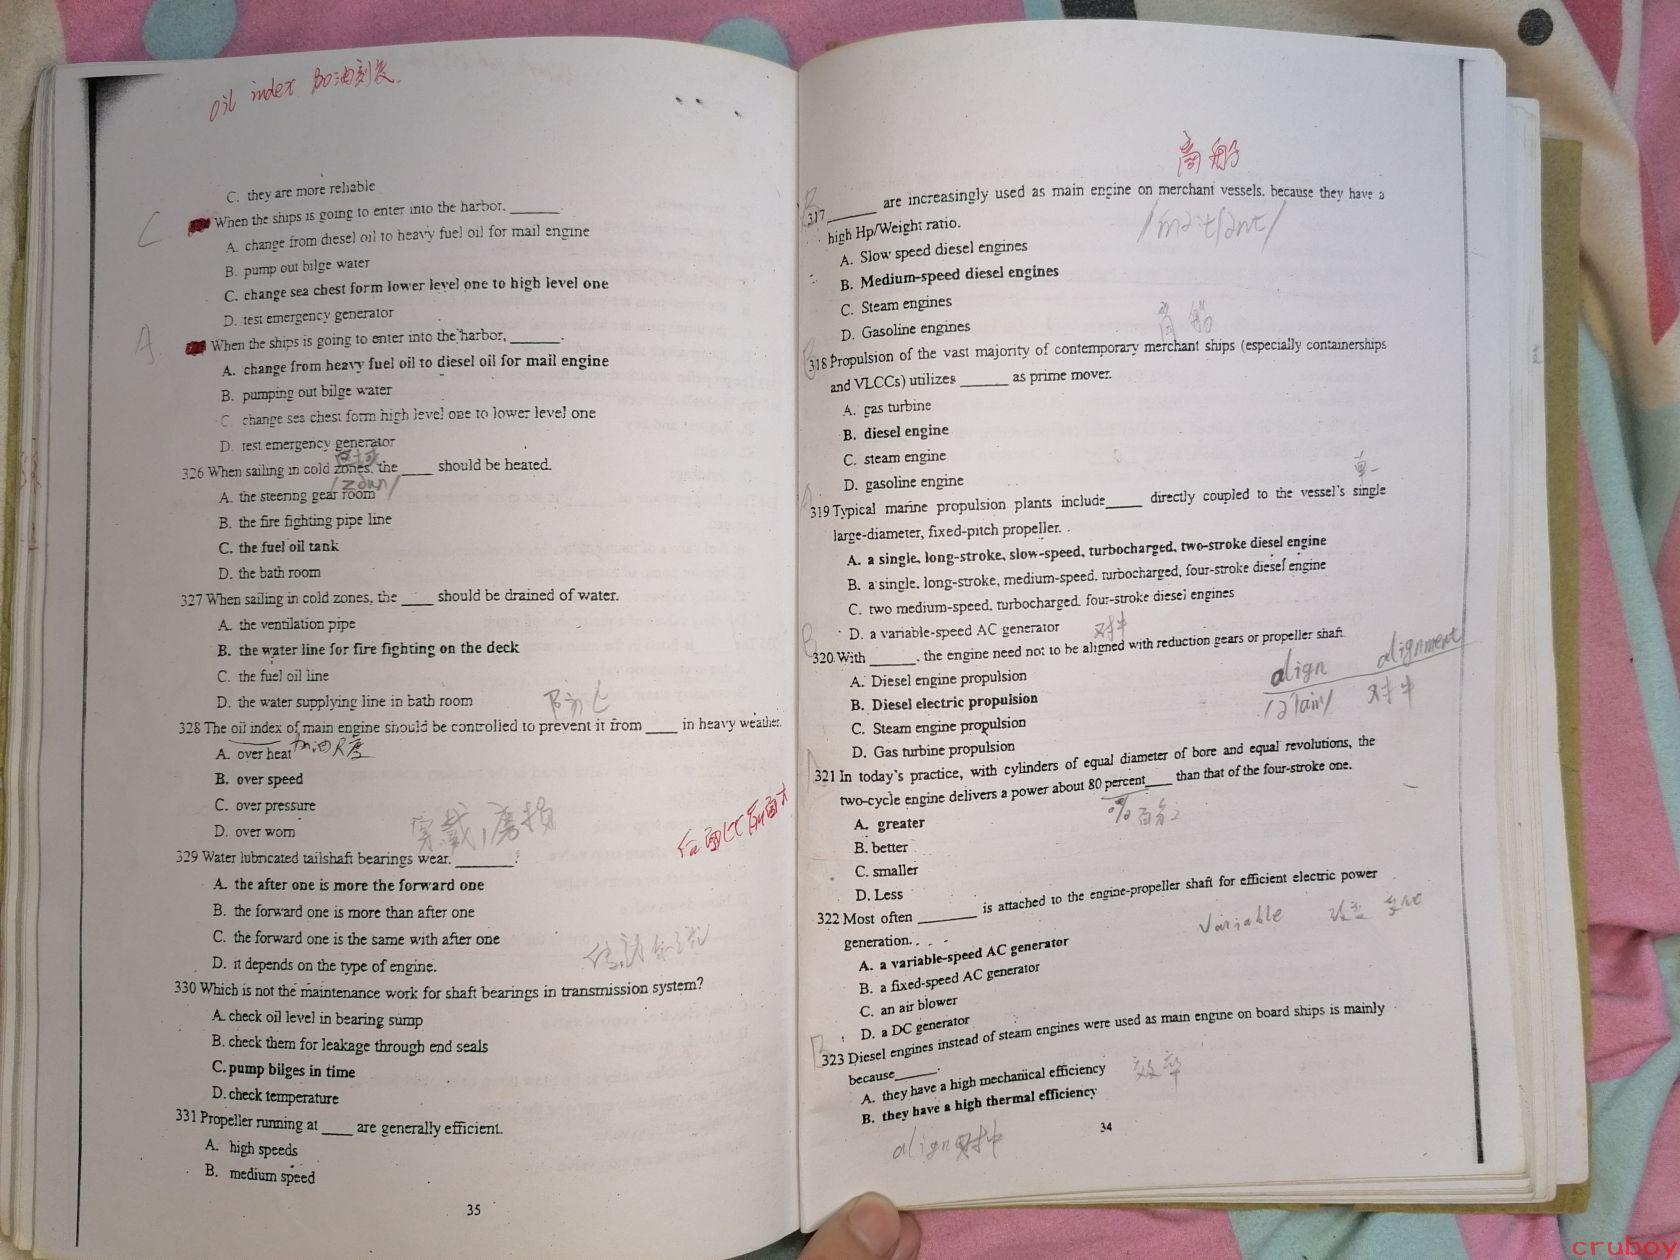 oil index 加油刻度.
C. they are more reliable
C
When the ships is going to enter into the harbor, ______.
A. change from diesel oil to heavy fuel oil for mail engine
B. pump out bilge water
C. change sea chest form lower level one to high level one
D. test emergency generator
A
When the ships is going to enter into the harbor, ______.
A. change from heavy fuel oil to diesel oil for mail engine
B. pumping out bilge water
C. change sea chest form high level one to lower level one
D. test emergency generator
区域
326 When sailing in cold zones, the ____ should be heated.
A. the steering gear room
B. the fire fighting pipe line
C. the fuel oil tank
D. the bath room
327 When sailing in cold zones, the ____ should be drained of water.
A. the ventilation pipe
B. the water line for fire fighting on the deck
C. the fuel oil line
D. the water supplying line in bath room
防止
328 The oil index of main engine should be controlled to prevent it from ____ in heavy weather.
A. over heat
加油尺度
B. over speed
C. over pressure
D. over worn
磨损
329 Water lubricated tailshaft bearings wear, ________?
A. the after one is more the forward one
B. the forward one is more than after one
C. the forward one is the same with after one
D. it depends on the type of engine.
330 Which is not the maintenance work for shaft bearings in transmission system?
A. check oil level in bearing sump
B. check them for leakage through end seals
C. pump bilges in time
D. check temperature
331 Propeller running at ____ are generally efficient.
A. high speeds
B. medium speed
35
商船
B
317 ______ are increasingly used as main engine on merchant vessels, because they have a
high Hp/Weight ratio.
A. Slow speed diesel engines
B. Medium-speed diesel engines
C. Steam engines
D. Gasoline engines
商船
B
318 Propulsion of the vast majority of contemporary merchant ships (especially containerships
and VLCCs) utilizes ______ as prime mover.
A. gas turbine
B. diesel engine
C. steam engine
D. gasoline engine
单一
A
319 Typical marine propulsion plants include____ directly coupled to the vessel's single
large-diameter, fixed-pitch propeller.
A. a single, long-stroke, slow-speed, turbocharged, two-stroke diesel engine
B. a single, long-stroke, medium-speed, turbocharged, four-stroke diesel engine
C. two medium-speed, turbocharged, four-stroke diesel engines
D. a variable-speed AC generator
对中
B
320 With ______, the engine need not to be aligned with reduction gears or propeller shaft.
align alignment
对中
A. Diesel engine propulsion
B. Diesel electric propulsion
C. Steam engine propulsion
D. Gas turbine propulsion
A
321 In today's practice, with cylinders of equal diameter of bore and equal revolutions, the
two-cycle engine delivers a power about 80 percent____ than that of the four-stroke one.
A. greater
% 百分之
B. better
C. smaller
D. Less
322 Most often ________ is attached to the engine-propeller shaft for efficient electric power
generation.
Variable
A. a variable-speed AC generator
B. a fixed-speed AC generator
C. an air blower
D. a DC generator
B
323 Diesel engines instead of steam engines were used as main engine on board ships is mainly
because______.
A. they have a high mechanical efficiency
效率
B. they have a high thermal efficiency
34
align 对中
cruboy